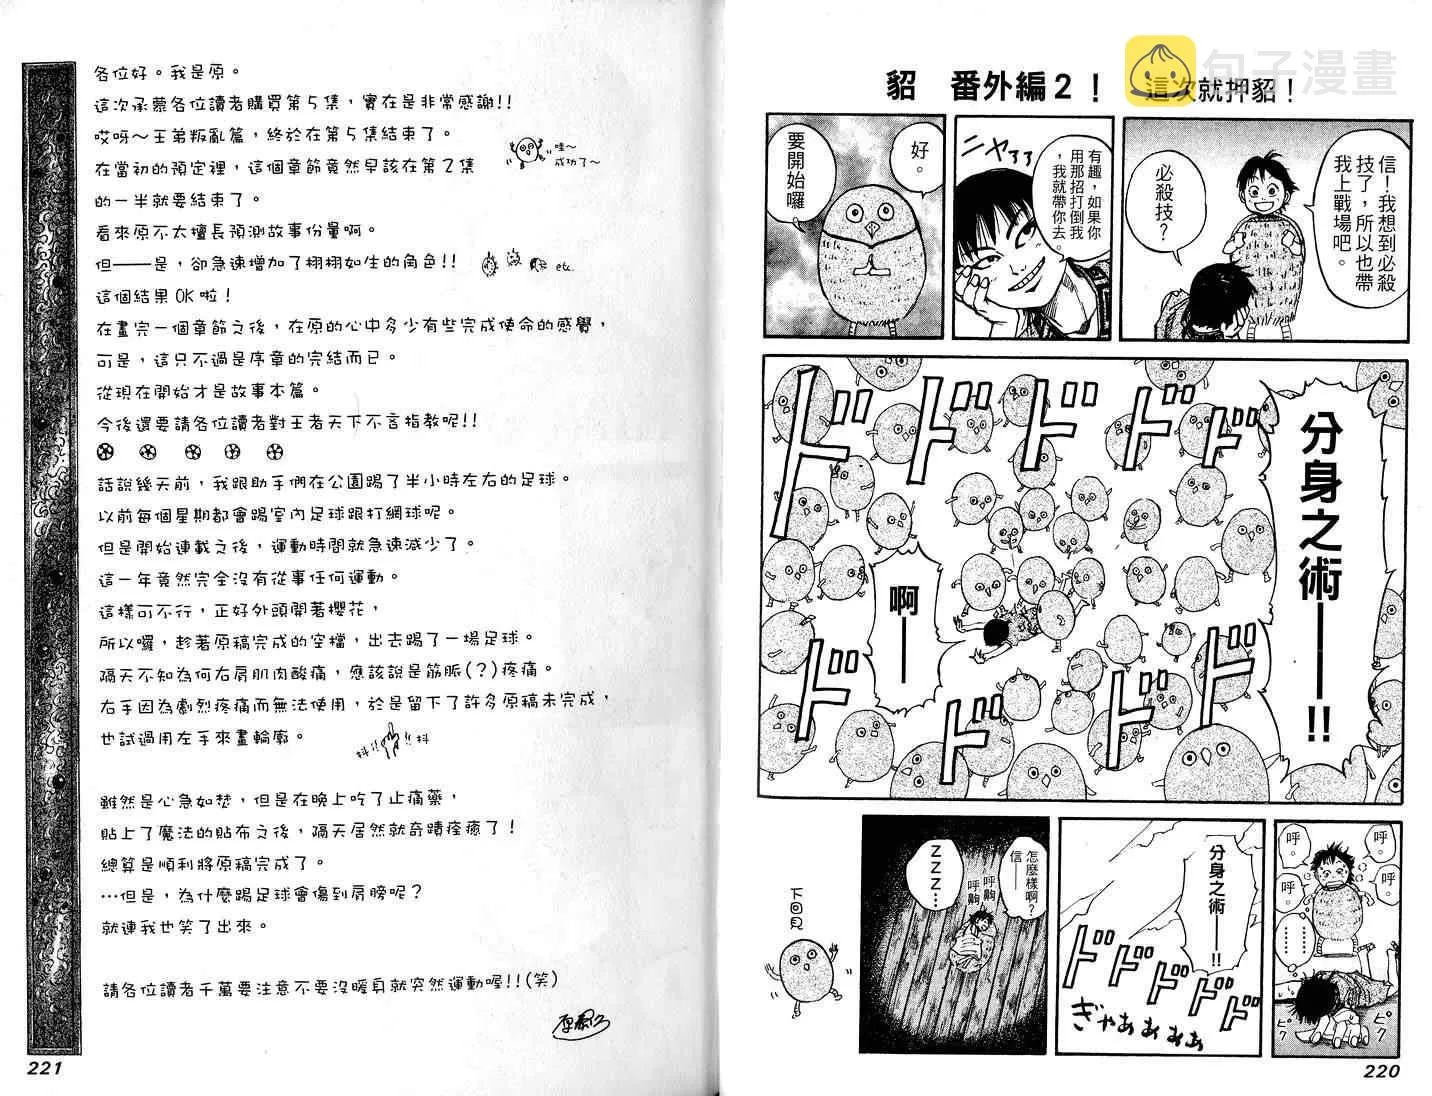 貂　番外編2！　這次就押貂！
句子漫畫
信！我想到必殺
技了，所以也帶
我上戰場吧。
必殺技？
有趣，如果你
用那招打倒我
，我就帶你去。
ニヤァァ
好。
要開始囉
分身之術──!!
啊──
ドドドドド
ドドドド
呼。
呼。
呼。
呼。
………
ピク
ピク
分身之術──!!
ドドドドド
ぎゃあぁぁぁぁ
怎麼樣啊？
信──
呼齁
呼齁
ZZZ…
下回見
220
各位好。我是原。
這次承蒙各位讀者購買第5集，實在是非常感謝!!
哎呀～王弟叛亂篇，終於在第5集結束了。
在當初的預定裡，這個章節竟然早該在第2集
的一半就要結束了。
哇～
成功了～
看來原不太擅長預測故事份量啊。
但──是，卻急速增加了栩栩如生的角色!!
etc.
這個結果OK啦！
在畫完一個章節之後，在原的心中多少有些完成使命的感覺，
可是，這只不過是序章的完結而已。
從現在開始才是故事本篇。
今後還要請各位讀者對王者天下不吝指教呢!!
話說幾天前，我跟助手們在公園踢了半小時左右的足球。
以前每個星期都會踢室內足球跟打網球呢。
但是開始連載之後，運動時間就急速減少了。
這一年竟然完全沒有從事任何運動。
這樣可不行，正好外頭開著櫻花，
所以囉，趁著原稿完成的空檔，出去踢了一場足球。
隔天不知為何右肩肌肉酸痛，應該說是筋脈(？)疼痛。
右手因為劇烈疼痛而無法使用，於是留下了許多原稿未完成，
也試過用左手來畫輪廓。
抖!!
!!抖
雖然是心急如焚，但是在晚上吃了止痛藥，
貼上了魔法的貼布之後，隔天居然就奇蹟痊癒了！
總算是順利將原稿完成了。
…但是，為什麼踢足球會傷到肩膀呢？
就連我也笑了出來。
請各位讀者千萬要注意不要沒暖身就突然運動喔!!(笑)
原泰久
221